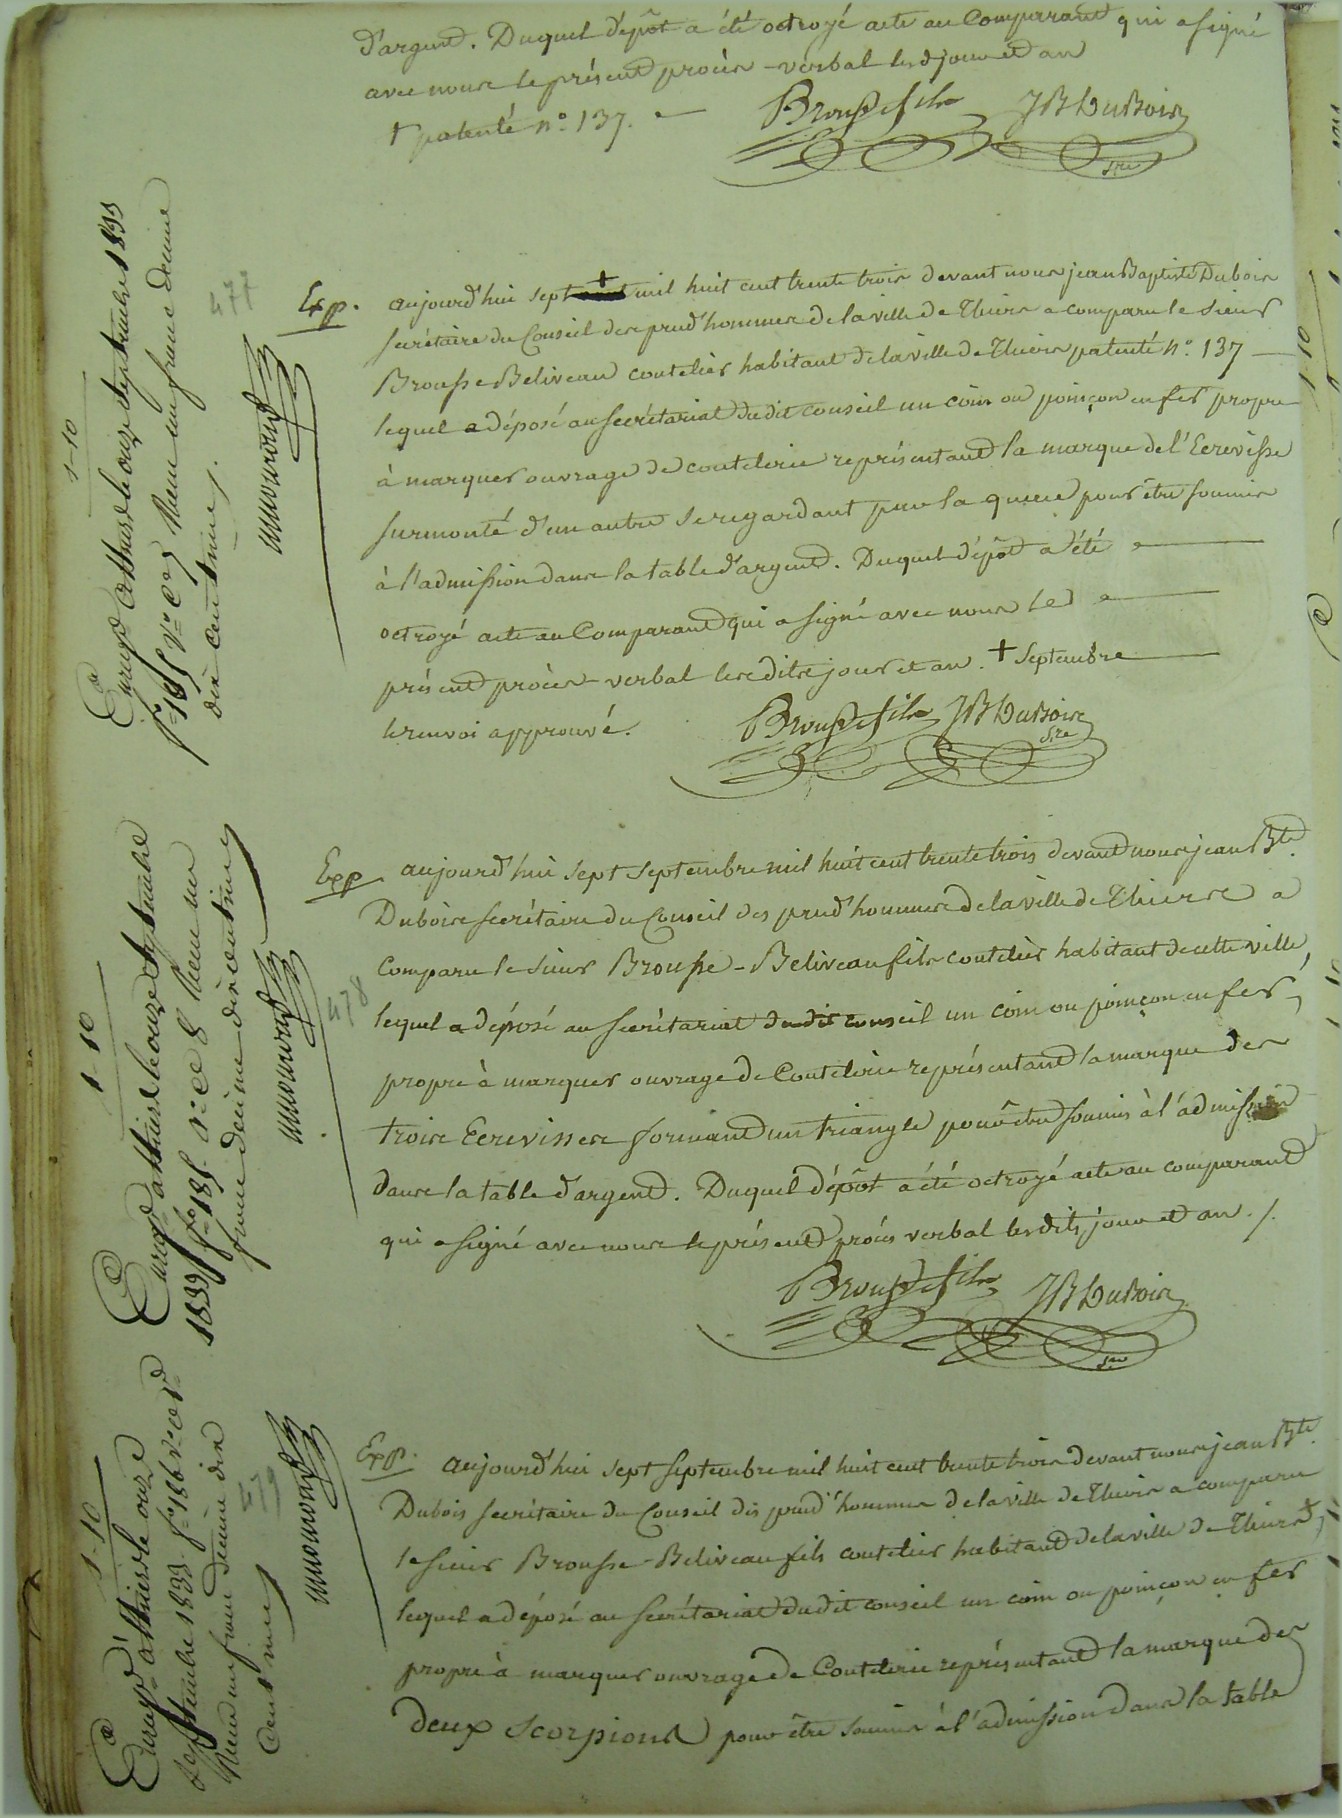 d'argent. Duquel dépôt a été octroyé acte au Comparant qui a signé
avec nous le présent procès-verbal lesd jour et an
+ patenté n° 137.
Brousse fils JB Dubois
Sre
1-10
Enregé à thiers le onze septembre 1833
f° 185 Vo Ce 7 Reçu un franc décime
dix centimes.
477
Exp. aujourd'hui sept + mil huit cent trente trois devant nous jean Baptiste Dubois
secrétaire du Conseil des prud'hommes de la ville de Thiers a comparu le sieur
Brousse Beliveau coutelier habitant de la ville de Thiers patenté n° 137
lequel a déposé au secrétariat dudit conseil un coin ou poinçon en fer propre
à marquer ouvrage de coutelerie représentant la marque de l'Ecrevisse
surmonté d'un autre se regardant par la queue pour être soumis
à l'admission dans la table d'argent. Duquel dépôt a été
octroyé acte au Comparant qui a signé avec nous le
présent procès-verbal lesdits jour et an. + Septembre
le renvoi approuvé.
Brousse fils JB Dubois
Sre
1-10
Enregé à thiers le onze septembre
1833 f° 185 Vo Ce 8 Reçu un
franc décime dix centimes
478
Exp aujourd'hui sept septembre mil huit cent trente trois devant nous jean Bte
Dubois secrétaire du Conseil des prud'hommes de la ville de Thiers a
comparu le sieur Brousse-Beliveau fils coutelier habitant de cette ville,
lequel a déposé au secrétariat dudit conseil un coin ou poinçon en fer,
propre à marquer ouvrage de Coutelerie représentant la marque des
trois Ecrevisses formant un triangle pour être soumis à l'admission
dans la table d'argent. Duquel dépôt a été octroyé acte au comparant
qui a signé avec nous le présent procès verbal lesdits jour et an ./.
Brousse fils JB Dubois
Sre
1-10
Enregé à thiers le onze
septembre 1833 f° 186
Reçu un franc décime dix
centimes
479
Exp. aujourd'hui sept septembre mil huit cent trente trois devant nous jean Bte
Dubois secrétaire du Conseil des prud'hommes de la ville de Thiers a comparu
le sieur Brousse-Beliveau fils coutelier habitant de la ville de Thiers,
lequel a déposé au secrétariat dudit conseil un coin ou poinçon en fer
propre à marquer ouvrage de Coutelerie représentant la marque des
deux scorpions pour être soumis à l'admission dans la table